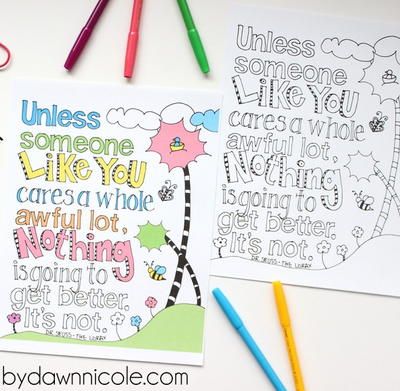 Unless
someone
Like You
cares a whole
awful lot,
Nothing
is going to
get better.
It's not.
DR SEUSS - THE LORAX
Unless
someone
Like You
cares a whole
awful lot,
Nothing
is going to
get better.
It's not.
DR SEUSS - THE LORAX
bydawnnicole.com